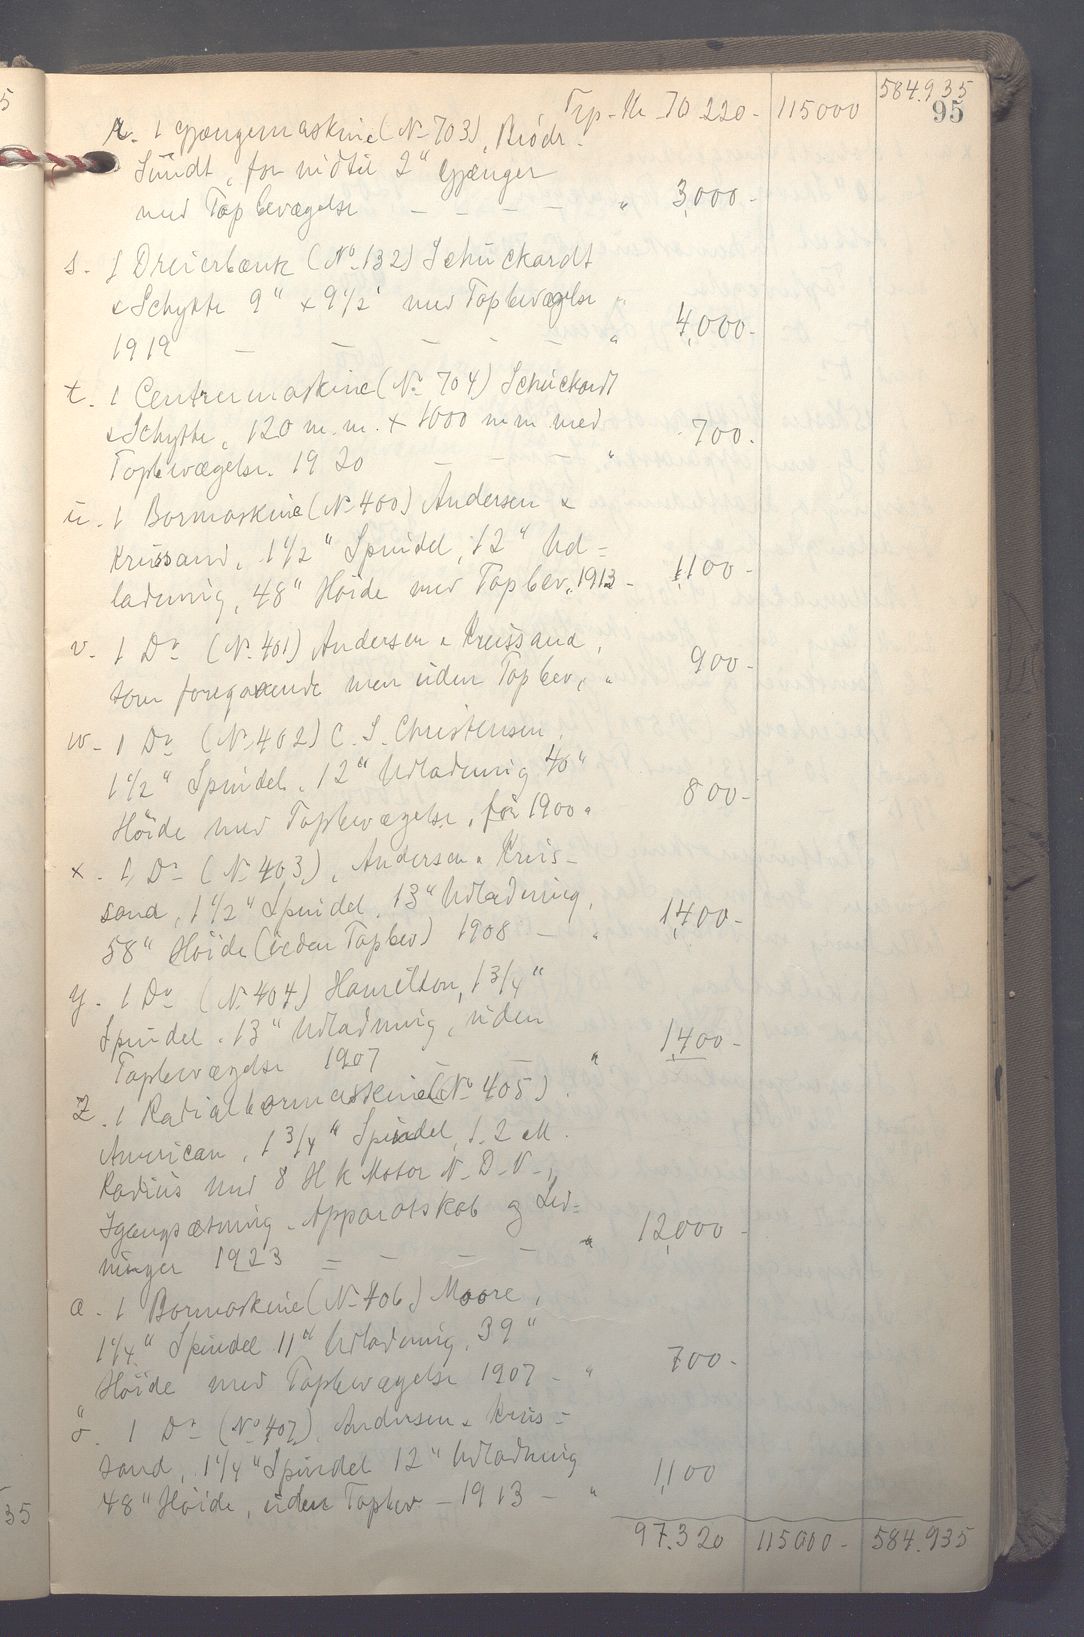 584.935
95
Trp. Kr 70 220.- 115000
r. 1 Gjængemaskine (No 703), Brödr.
Sundt, for indtil 2" Gjænger
med Topbevægelse - - - - " 3,000.-
s. 1 Dreierbænk (No. 132) Schuckardt
& Schytte 9" x 9 1/2' med Topbevægelse
1919 - - - - - " 4,000.-
t. 1 Centrermaskine (No 704) Schuckardt
& Schytte, 120 m.m. x 1000 mm med 700.
Topbevægelse. 1920 - - - - "
u. 1 Bormaskine (No 400) Andersen &
Kreissand, 1 1/2" Spindel, 12" Ud=
ladning, 48" Höide med Topbev., 1913 - 1,100-
v. 1 Do (No 401) Andersen & Kreissand,
som foregaaende men uden Topbev., " 900-
w- 1 Do (No 402) C. S. Christensen,
1 1/2" Spindel. 12" Udladning 40"
Höide med Topbevægelse, før 1900 " 800-
x. 1 Do (No 403), Andersen & Kreis-
sand, 1 1/2" Spindel, 13" Udladning,
58" Höide (uden Topbev) 1908 - " 1,400-
y. 1 Do (No 404) Hamilton, 1 3/4"
Spindel. 13" Udladning, uden
Topbevægelse 1907 - - " 1,400-
Z. 1 Radialbormaskine (No 405).
American, 1 3/4" Spindel, 1.2 M.
Radius med 8 H K Motor N-D-N-,
Igangsætning. Apparatskab og Led=
ninger 1923 = - - - " 12,000-
a. 1 Bormaskine (No 406) Moore,
1 1/4" Spindel 11" Udladning, 39"
Höide med Topbevægelse 1907 - " 700-
ö. 1 Do (No 407), Andersen & Kreis-
sand, 1 1/4" Spindel 12" Udladning
48" Höide, uden Topbev - 1913 - " 1,100
97.320 115000- 584.935
5
35